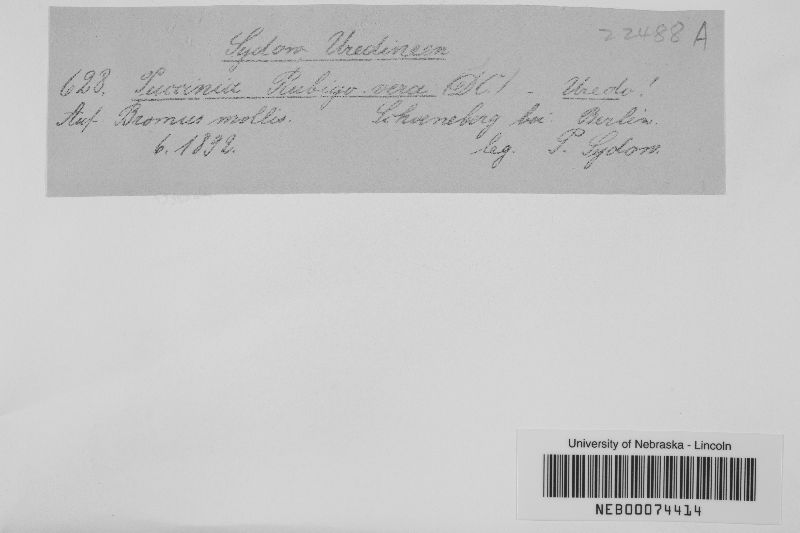 22488 A
Sydow, Uredineen
623. Puccinia Rubigo-vera (DC) - Uredo!
Auf Bromus mollis. Schoeneberg bei Berlin.
6. 1892. leg. P. Sydow.
University of Nebraska - Lincoln
NEB00074414